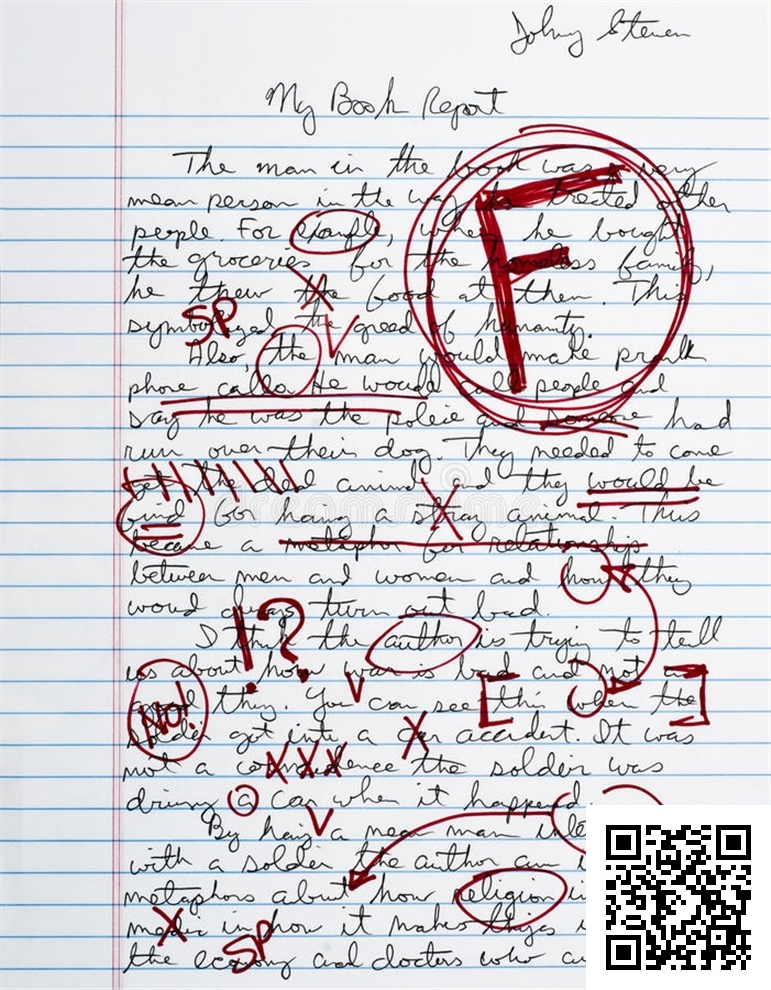 Johny Steven
My Book Report
The man in the book was a very
mean person in the way he treated other
people. For example, when he bought
the groceries for the homeless family,
he threw the food at them. This
SP
symbolized the greed of humanity.
Also, the man would make prank
phone calls. He would call people and
say he was the police and someone had
run over their dog. They needed to come
get the dead animal and they would be
for having a stray animal. Thus
became a metaphor for relationship
between men and women and how they
woud always turn out bad.
!?
I think the author is trying to tell
us about how war is bad and not a
good thing. You can see this when the
NO!
soldei got into a car accident. It was
not a the solder was
driving a car when it happened.
By having a mean man
with a solder the author can
metaphors about how religion
in how it makes things
SP
the economy and doctors who
F